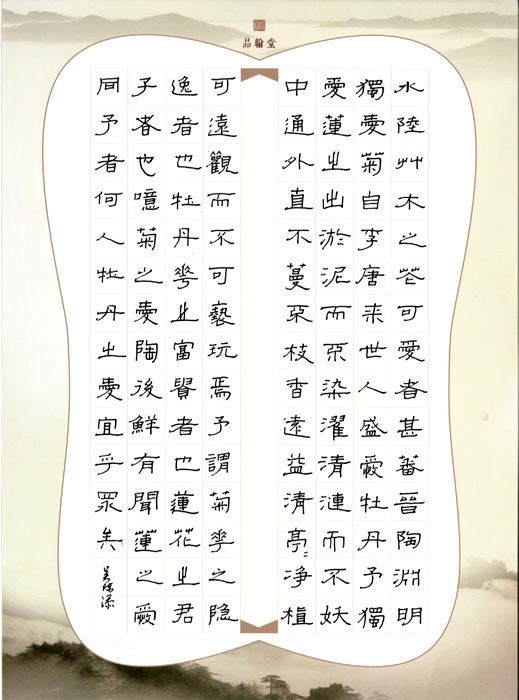 品翰堂
水陸艸木之花可愛者甚蕃晉陶淵明
獨愛菊自李唐来世人盛愛牡丹予獨
愛蓮之出淤泥而不染濯清漣而不妖
中通外直不蔓不枝香遠益清亭〻净植
可遠觀而不可褻玩焉予謂菊華之隐
逸者也牡丹華之富貴者也蓮花之君
子者也噫菊之愛陶後鮮有聞蓮之愛
同予者何人牡丹之愛宜乎眾矣